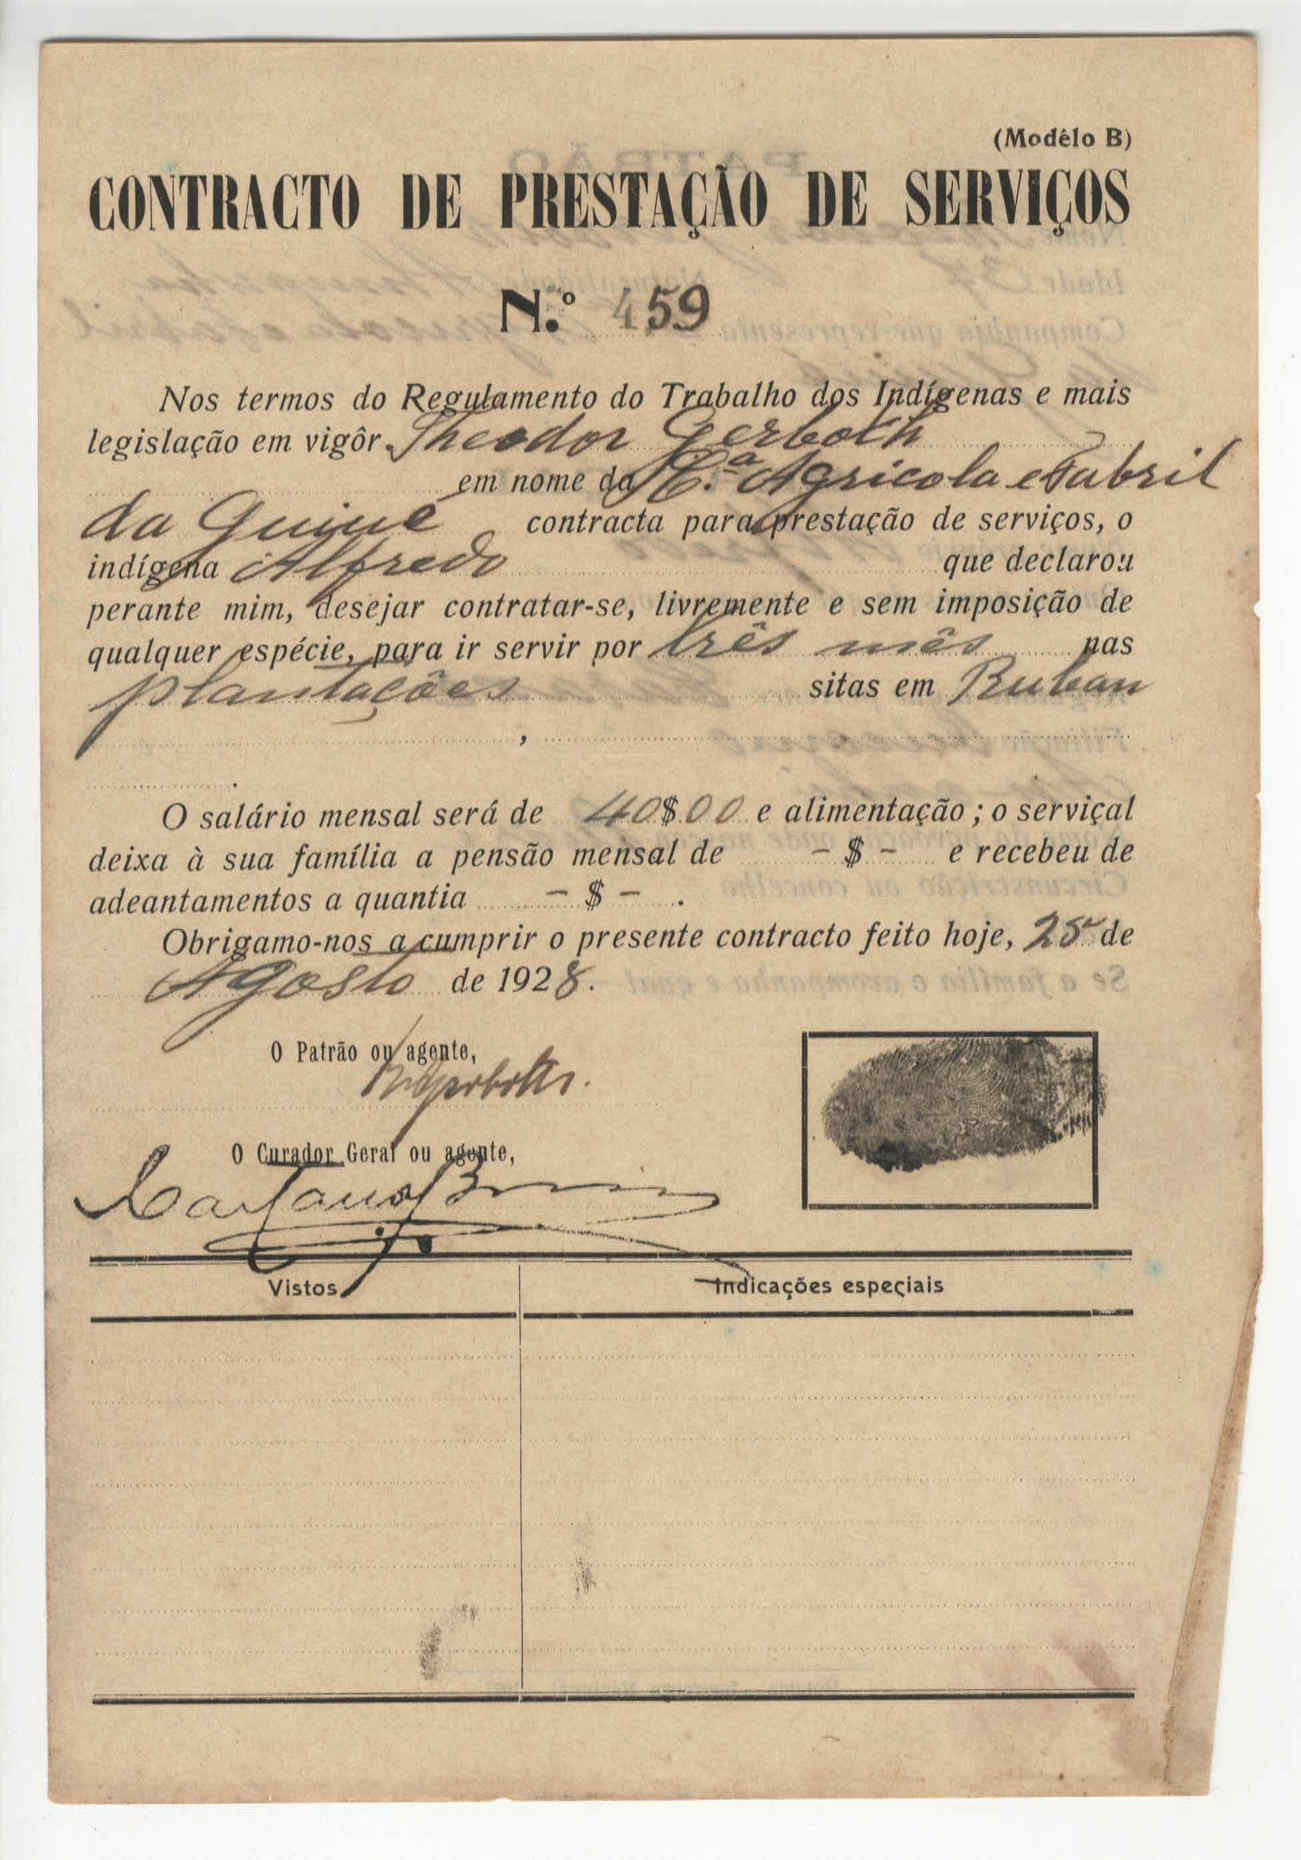 (Modêlo B)
CONTRACTO DE PRESTAÇÃO DE SERVIÇOS
N.º 459
Nos termos do Regulamento do Trabalho dos Indígenas e mais
legislação em vigôr Theodor Gerboth
em nome da C.ª Agricola e Fabril
da Guiné contracta para prestação de serviços, o
indígena Alfredo que declarou
perante mim, desejar contratar-se, livremente e sem imposição de
qualquer espécie, para ir servir por três mês nas
plantações sitas em Ruban
,
.
O salário mensal será de 40$00 e alimentação; o serviçal
deixa à sua família a pensão mensal de -$- e recebeu de
adeantamentos a quantia -$-.
Obrigamo-nos a cumprir o presente contracto feito hoje, 25 de
Agosto de 1928.
O Patrão ou agente,
O Curador Geral ou agente,
Vistos
Indicações especiais